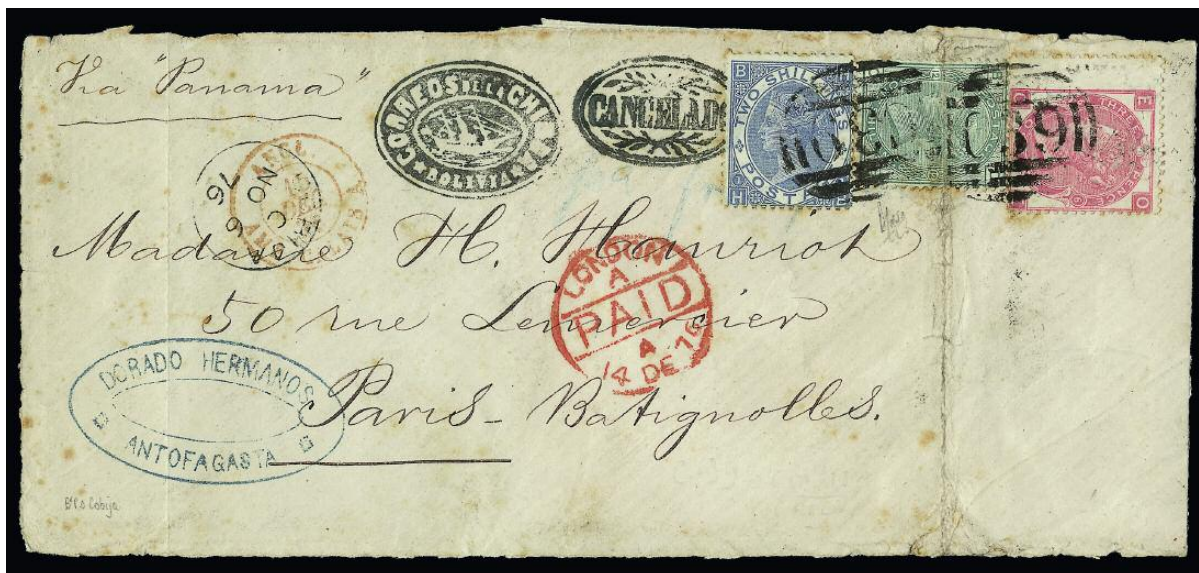 Via "Panama"
CORREOS DE LA CHIMBA
BOLIVIA
CANCELADO
TWO SHILLINGS
POSTAGE
B H
H B
THREE PENCE
E
O
C39
NO 6
76
Madame H. Henriot
50 rue Lemercier
Paris - Batignolles.
LONDON
A
PAID
A
14 DE 76
DORADO HERMANOS
ANTOFAGASTA